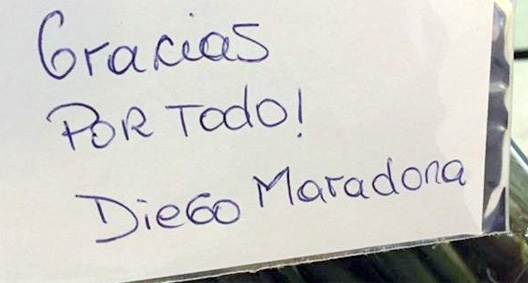 Gracias
POR TODO!
DIEGO Maradona